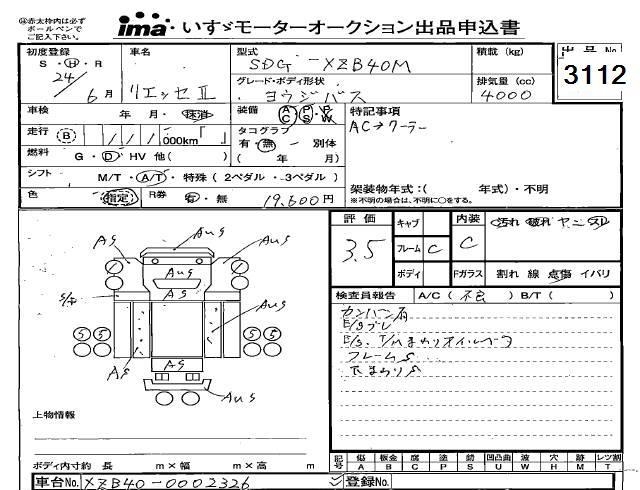 ㊟赤太枠内は必ず
ボールペンで
ご記入下さい。
ima いすゞモーターオークション出品申込書
初度登録 車名 型式 積載 (kg) 出品No
S・H・R SDG-XZB40M 3112
24年6月 リエッセⅡ グレード・ボディ形状 排気量(cc)
ヨウジバス 4000
車検 年 月・抹消 装備 AC PS PW 特記事項
AC→クーラー
走行 B 000km タコグラフ
有・無 - 別体
燃料 G・D・HV 他( ) ( 年 月)
シフト M/T・A/T・特殊(2ペダル・3ペダル) 架装物年式:( 年式)・不明
※不明の場合は、不明に○をする。
色 指定 R券 有・無 19,600円
評価 キャブ 内装 汚れ 破れ ヤニ スレ
3.5 フレーム C C
ボディ Fガラス 割れ 線 点傷 イバリ
検査員報告 A/C(不良) B/T( )
カンバン有
E/gブレ
E/g、T/Mまわりオイルモーラ
フレームS
下まわりS
AS AUS AUS
AUS
AS
S/F AUS
S S S S
AS
AS
AUS
上物情報
ボディ内寸約 長 m×幅 m×高 m
記号 傷 板金 腐 塗 錆 凹凸曲 波 穴 跡 レンズ割
A B C P S U W H M T
車台No. XZB40-0002326 登録No.